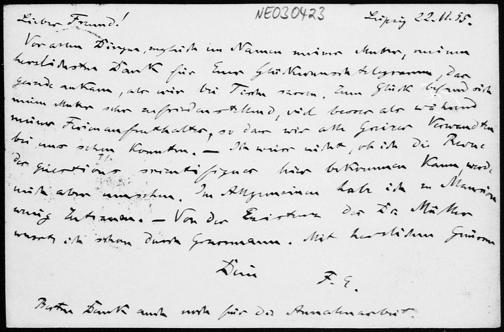 NE030423
Lieber Freund! Leipzig 22.11.55.
Vor allen Dingen, zugleich im Namen meiner Mutter, meinen
herzlichsten Dank für Euer Glückwunschtelegramm, das
gerade ankam, als wir bei Tisch sassen. Zum Glück befand sich
meine Mutter sehr zufriedenstellend, viel besser als während
meines Ferienaufenthaltes, so dass wir alle Verwandten
bei uns sehen konnten. — Ich weiss nicht, ob ich die Revue
des questions scientifiques hier bekommen kann, werde
mich aber umsehen. Im Allgemeinen habe ich zu Mansion
wenig Zutrauen. — Von der Existenz des Dr. Müller
wusste ich schon durch Grassmann. Mit herzlichen Grüssen
Dein F. E.
Besten Dank auch noch für die